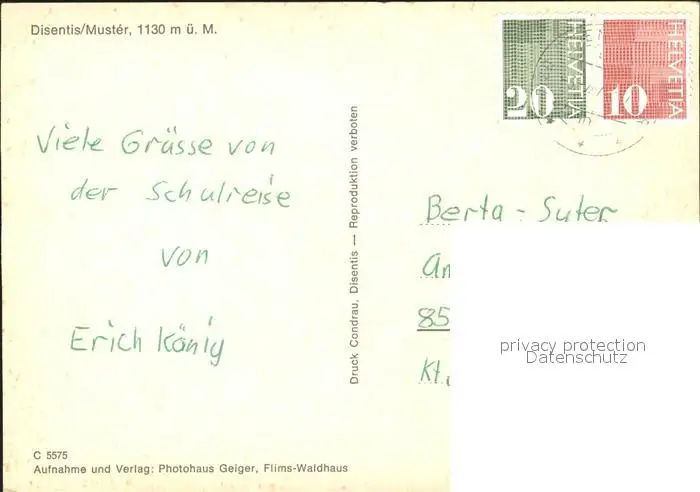 Disentis/Mustér, 1130 m ü. M.
HELVETIA
20
HELVETIA
10
Viele Grüsse von
der Schulreise
von
Erich König
Druck Condrau, Disentis — Reproduktion verboten
Berta - Suter
An
85
Kt.
privacy protection
Datenschutz
C 5575
Aufnahme und Verlag: Photohaus Geiger, Flims-Waldhaus